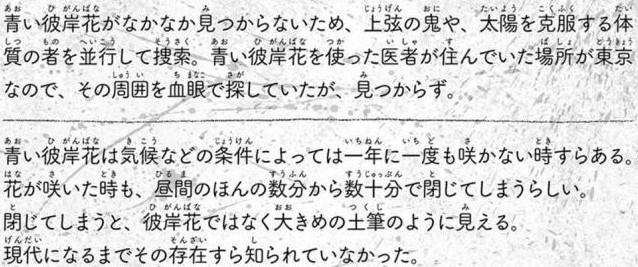 青い彼岸花がなかなか見つからないため、上弦の鬼や、太陽を克服する体
質の者を並行して捜索。青い彼岸花を使った医者が住んでいた場所が東京
なので、その周囲を血眼で探していたが、見つからず。
青い彼岸花は気候などの条件によっては一年に一度も咲かない時すらある。
花が咲いた時も、昼間のほんの数分から数十分で閉じてしまうらしい。
閉じてしまうと、彼岸花ではなく大きめの土筆のように見える。
現代になるまでその存在すら知られていなかった。